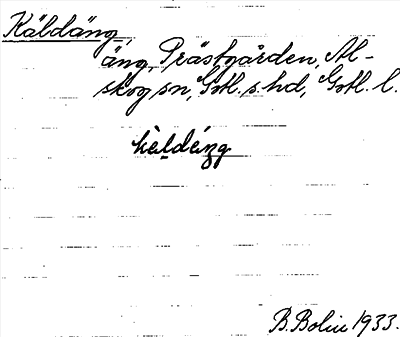 Käldäng,
äng, Prästgården, Al-
skog sn, Gotl. s. hd, Gotl. l.
kèldéng
B. Bolin 1933.